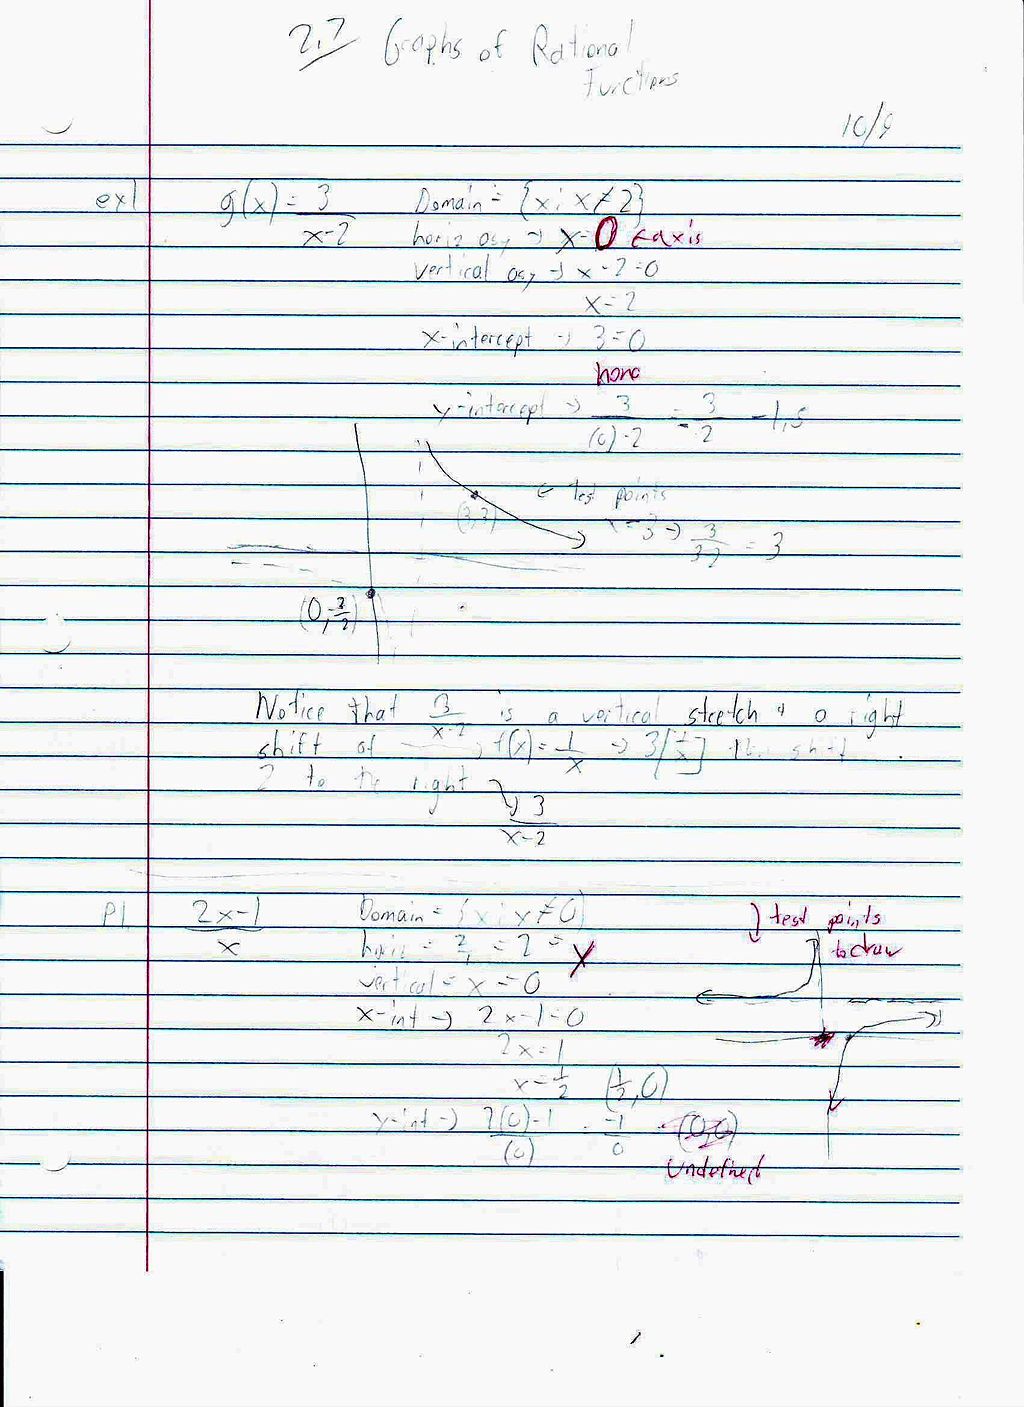 2.7 Graphs of Rational
Functions
10/9
ex1 g(x) = 3/(x-2) Domain = {x: x≠2}
horiz asy → x=0 ← axis
vertical asy → x-2=0
x=2
x-intercept → 3=0
none
y-intercept → 3/((0)-2) = 3/-2 -1.5
← test points
(3,3) x=3 → 3/(3-2) = 3
(0, -3/2)
Notice that 3/(x-2) is a vertical stretch & a right
shift of f(x) = 1/x → 3[1/x] shift
2 to the right
3/(x-2)
P1. (2x-1)/x Domain = {x: x≠0}
test points
horiz = 2/1 = 2 = y
to draw
vertical = x = 0
x-int → 2x-1=0
2x=1
x=1/2 (1/2, 0)
y-int → (2(0)-1)/(0) = -1/0 (0,0)
Undefined